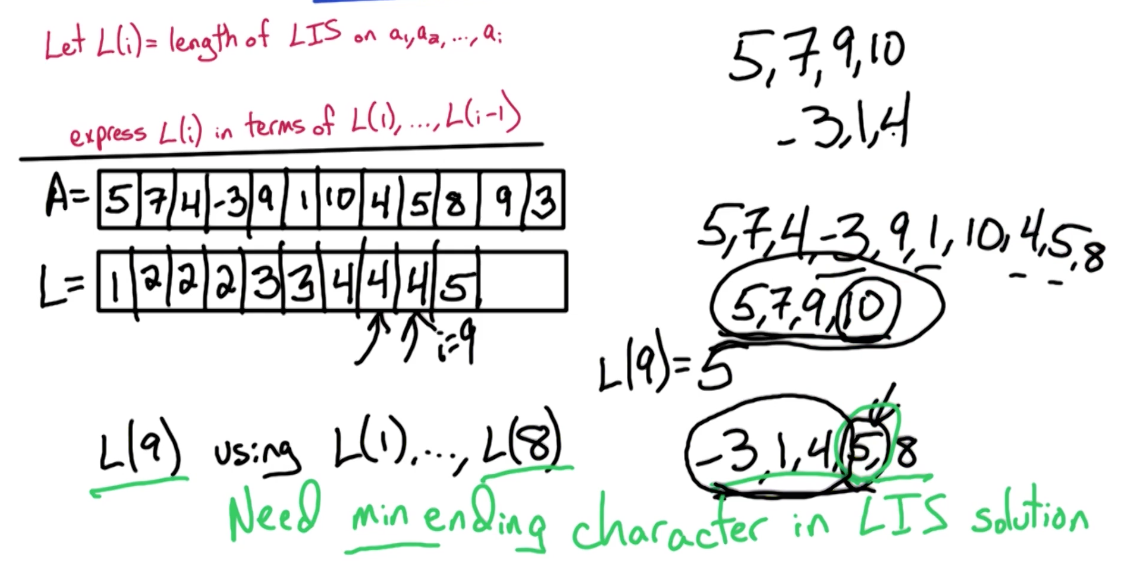 Let L(i) = length of LIS on a₁, a₂, ..., aᵢ
express L(i) in terms of L(1), ..., L(i-1)
A= 5 7 4 -3 9 1 10 4 5 8 9 3
L= 1 2 2 2 3 3 4 4 4 5
i=9
L(9) using L(1), ..., L(8)
Need min ending character in LIS solution
5, 7, 9, 10
-3, 1, 4
5, 7, 4, -3, 9, 1, 10, 4, 5, 8
5, 7, 9, 10
L(9) = 5
-3, 1, 4, 5, 8